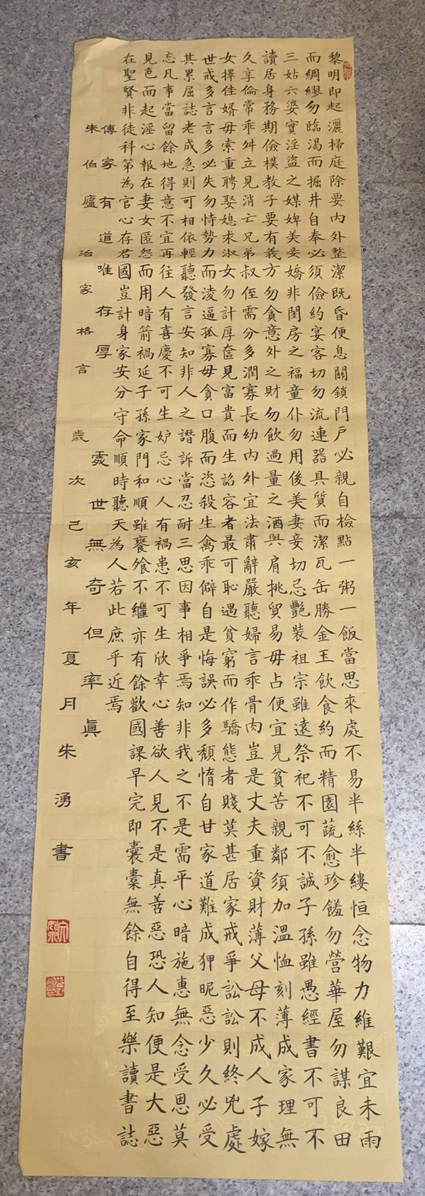 黎明即起灑掃庭除要內外整潔既昏便息關鎖門戶必親自檢點一粥一飯當思來處不易半絲半縷恒念物力維艱宜未雨
而綢繆勿臨渴而掘井自奉必須儉約宴客切勿流連器具質而潔瓦缶勝金玉飲食約而精園蔬愈珍饈勿營華屋勿謀良田
三姑六婆實淫盜之媒婢美妾嬌非閨房之福童仆勿用後美妻妾切忌艷裝祖宗雖遠祭祀不可不誠子孫雖愚經書不可不
讀居身務期儉樸教子要有義方勿貪意外之財勿飲過量之酒與肩挑貿易毋占便宜見貧苦親鄰須加溫恤刻薄成家理無
久享倫常乖舛立見消亡兄弟叔侄需分多潤寡長幼內外宜法肅辭嚴聽婦言乖骨肉豈是丈夫重資財薄父母不成人子嫁
女擇佳婿毋索重聘娶媳求淑女勿計厚奩見富貴而生諂容者最可恥遇貧窮而作驕態者賤莫甚居家戒爭訟訟則終兇處
世戒多言言多必失勿恃勢力而凌逼孤寡毋貪口腹而恣殺生禽乖僻自是悔誤必多頹惰自甘家道難成狎昵惡少久必受
其累屈誌老成急則可相依輕聽發言安知非人之譖訴當忍耐三思因事相爭焉知非我之不是需平心暗施惠無念受恩莫
忘凡事當留餘地得意不宜再往人有喜慶不可生妒忌心人有禍患不可生欣幸心善欲人見不是真善惡恐人知便是大惡
見色而起淫心報在妻女匿怨而用暗箭禍延子孫家門和順雖饔飧不繼亦有餘歡國課早完即囊橐無餘自得至樂讀書誌
在聖賢非徒科第為官心存君國豈計身家安分守命順時聽天為人若此庶乎近焉
傳家有道唯存厚處世無奇但率眞
朱伯廬治家格言歲次己亥年夏月朱湧書